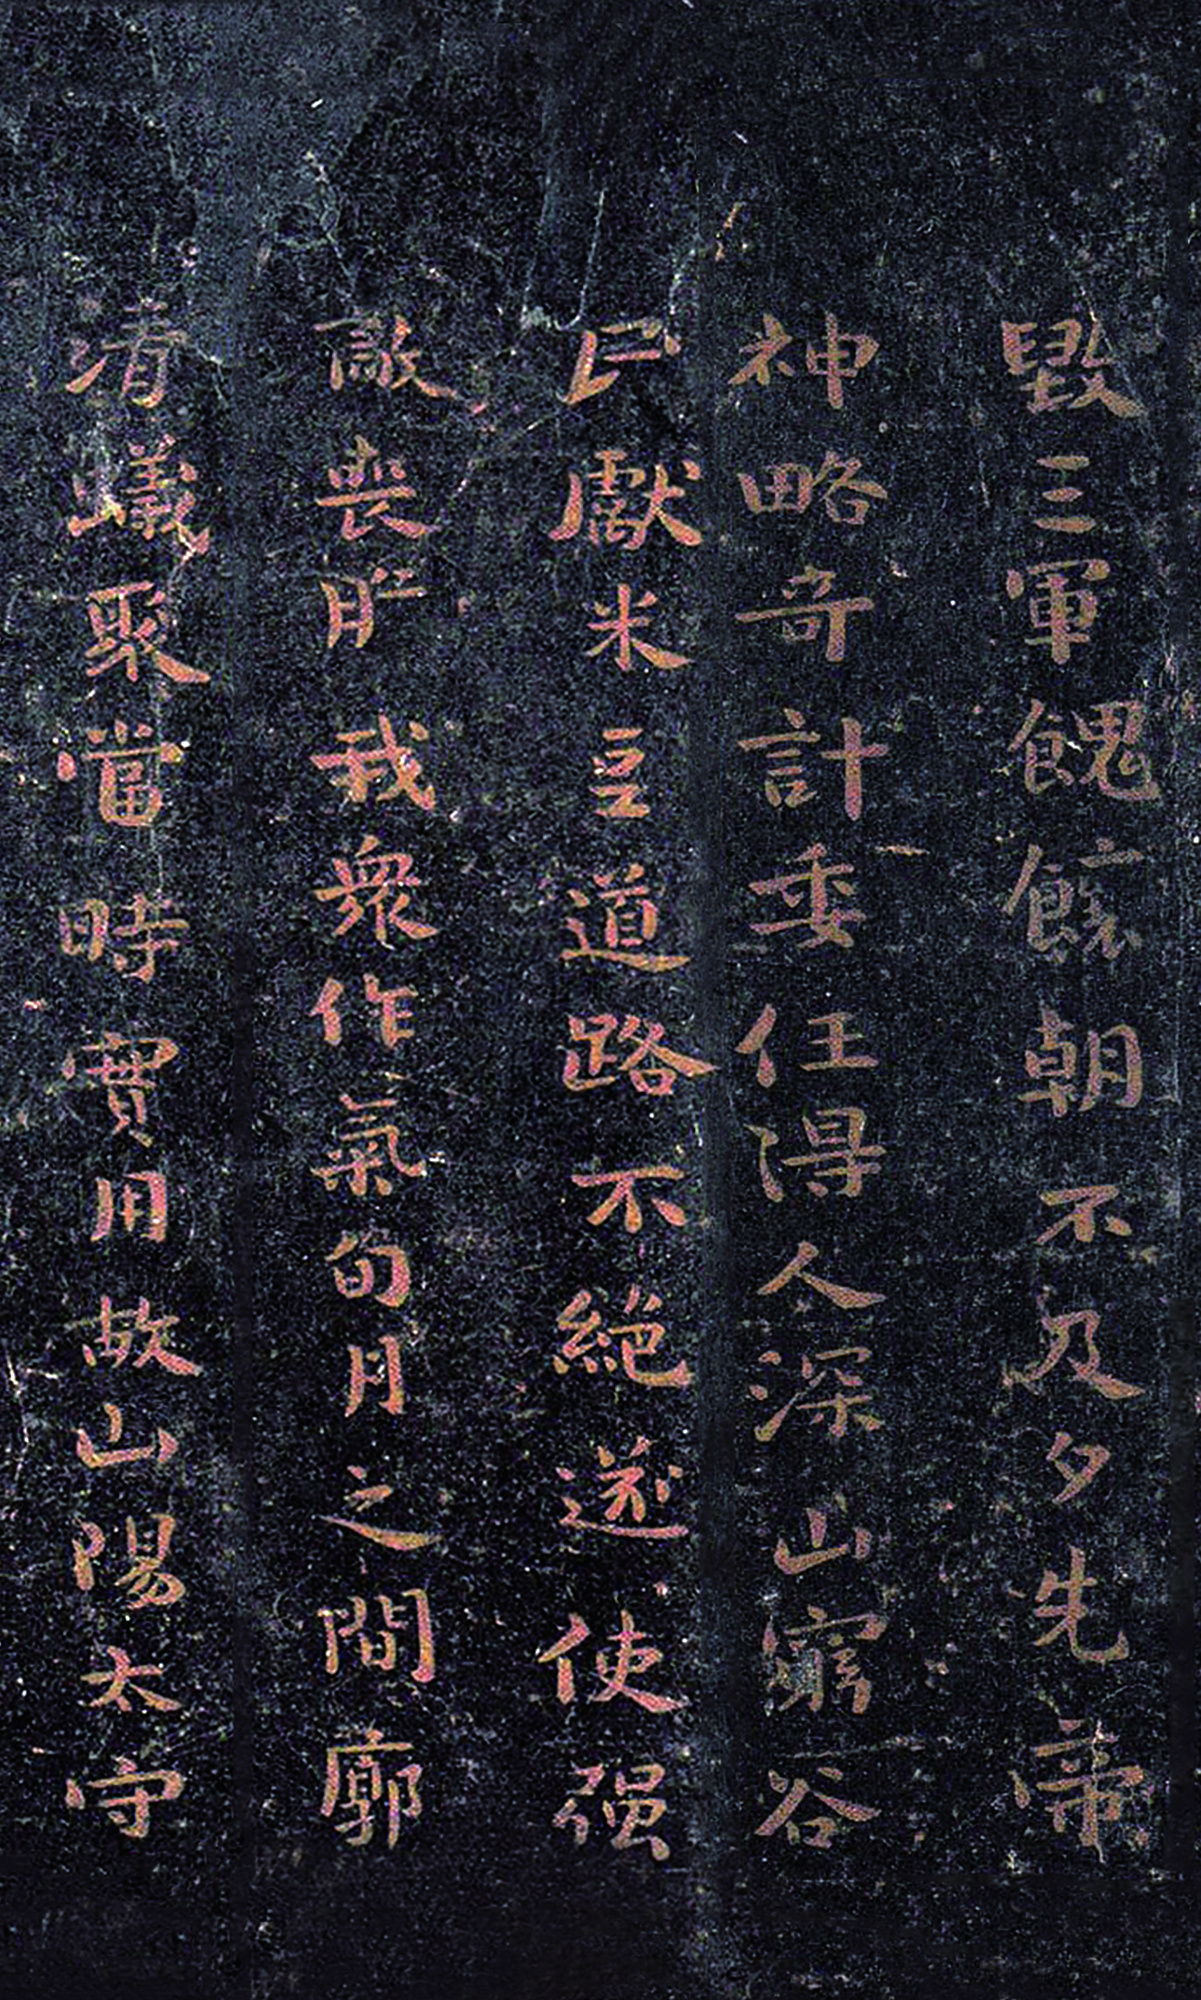 毀三軍餽饟朝不及夕先帝
神略奇計委任得人深山窮谷
民獻米豆道路不絕遂使强
敵喪膽我眾作氣旬月之間廓
清蟻聚當時實用故山陽太守